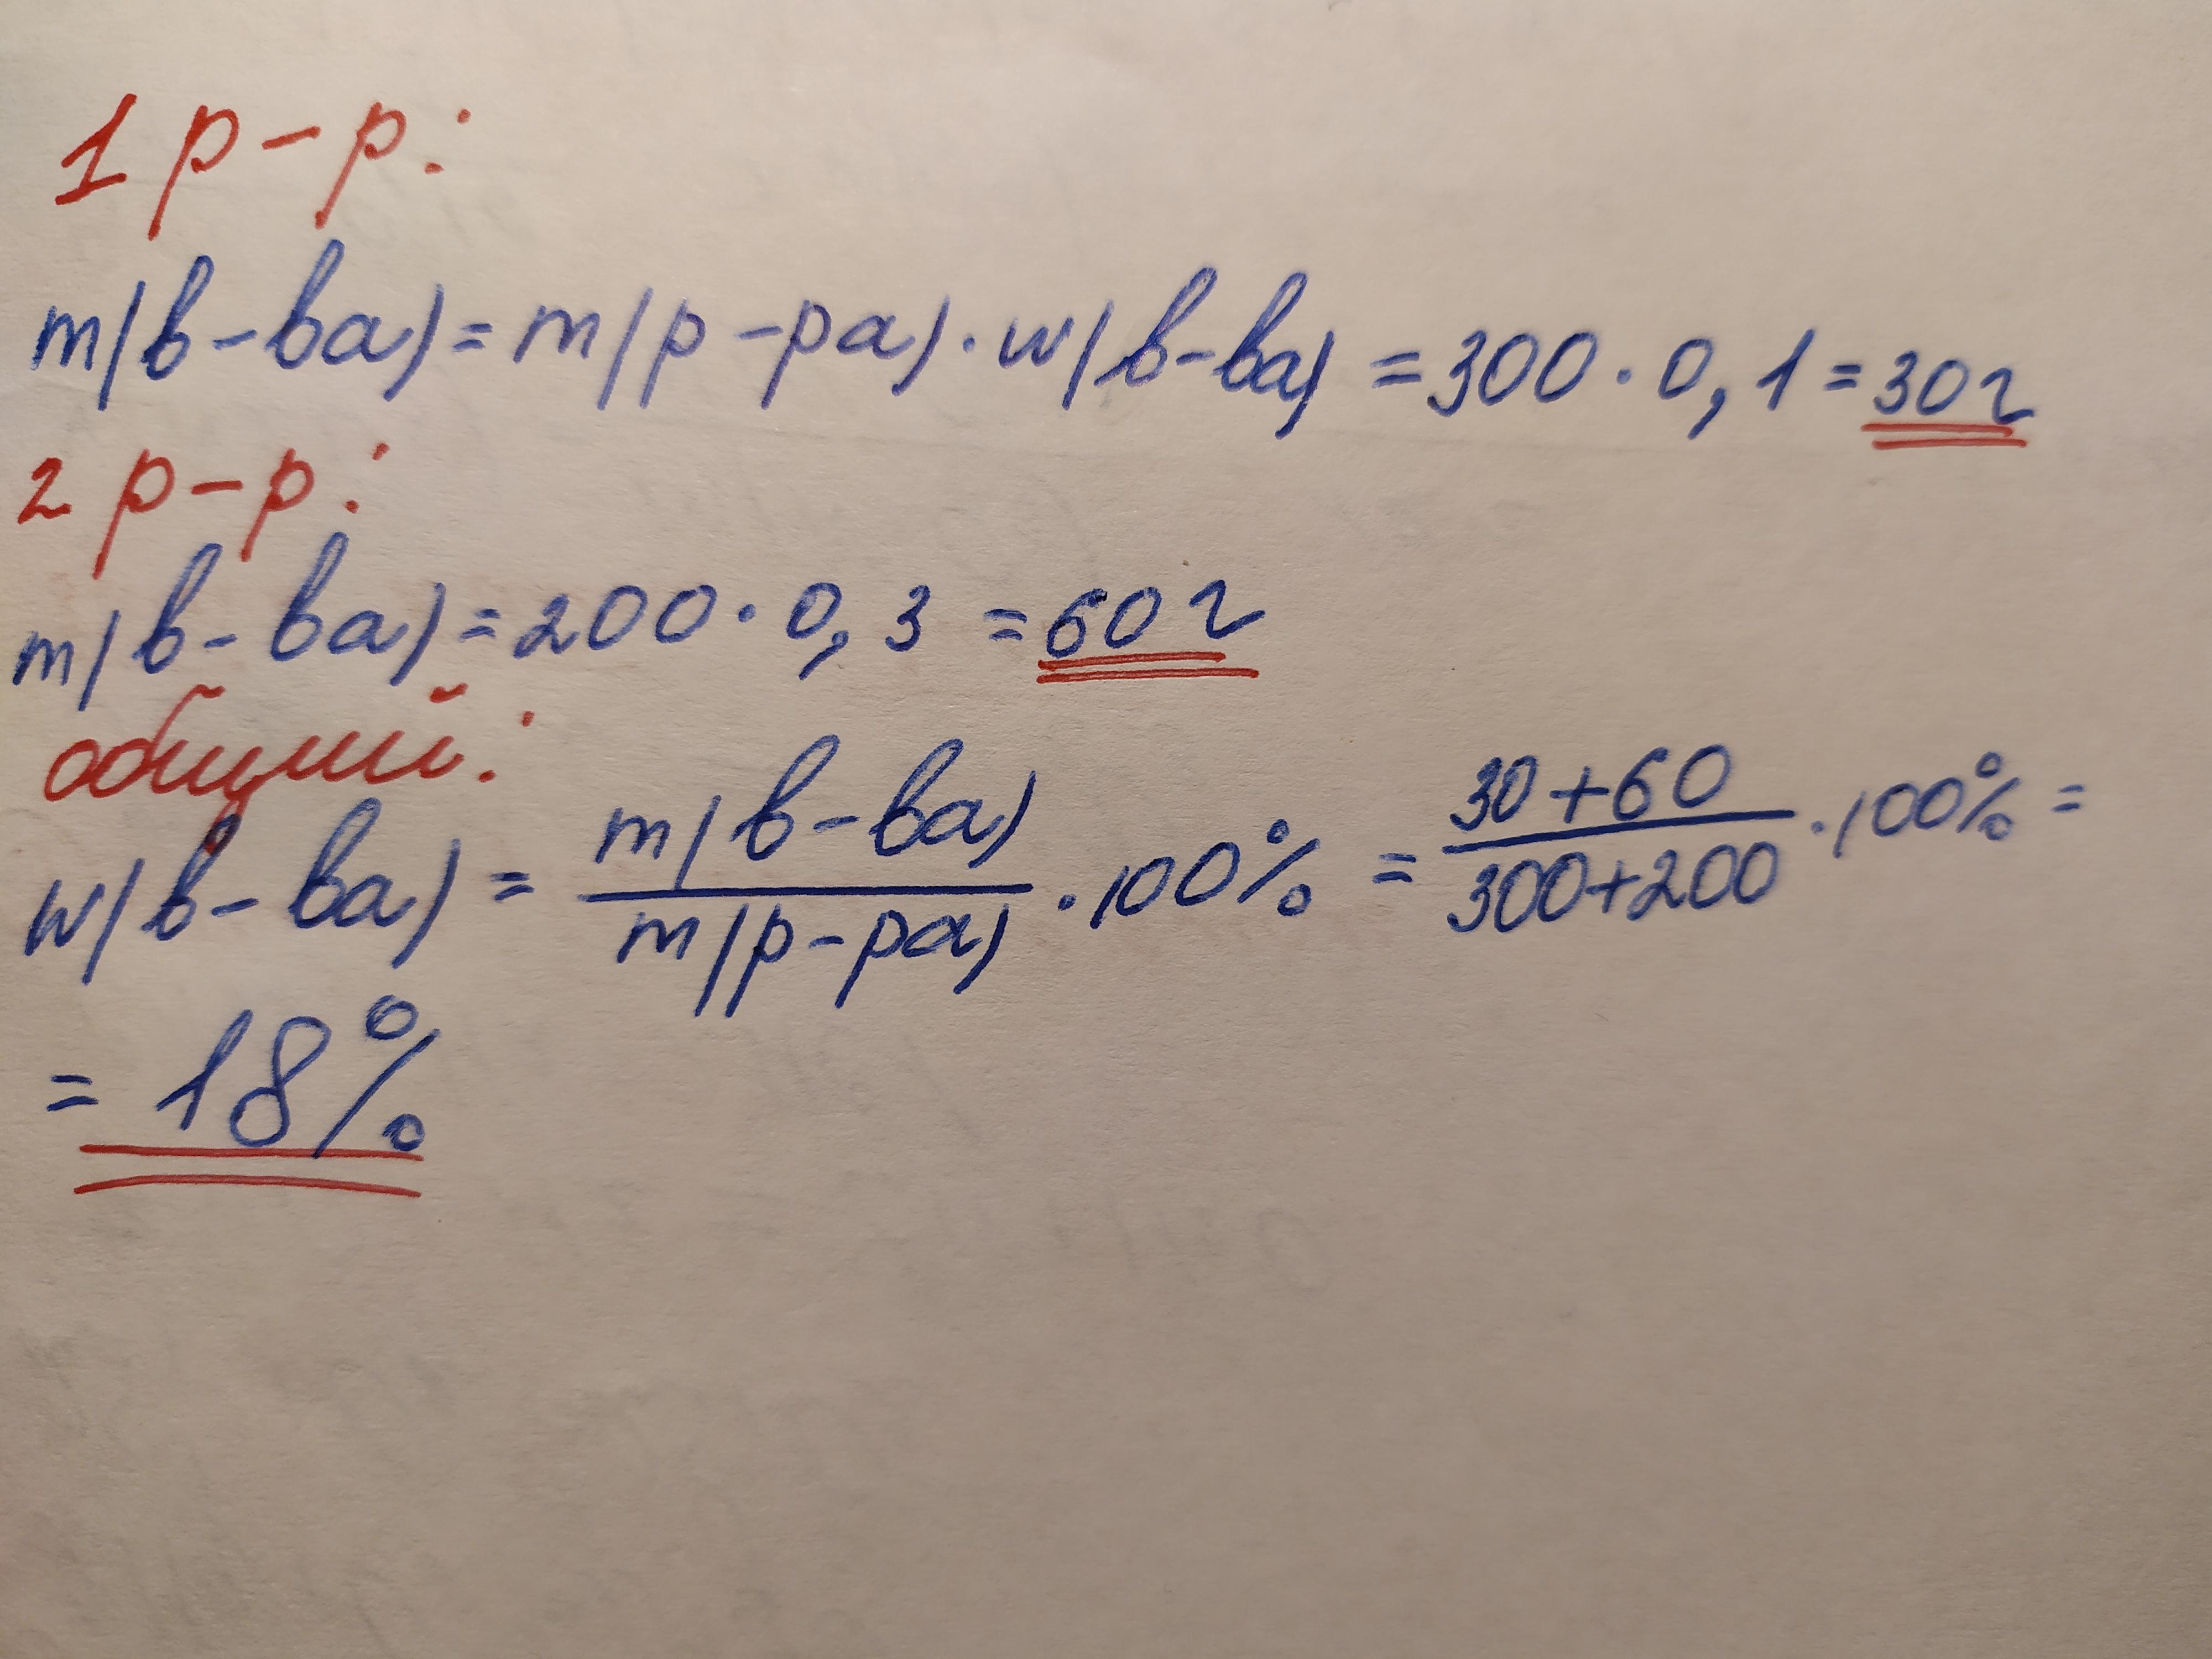 1 р-р:
m(в-ва) = m(р-ра) · w(в-ва) = 300 · 0,1 = 30г
2 р-р:
m(в-ва) = 200 · 0,3 = 60г
общий:
w(в-ва) = m(в-ва) / m(р-ра) · 100% = 30+60 / 300+200 · 100% =
= 18%